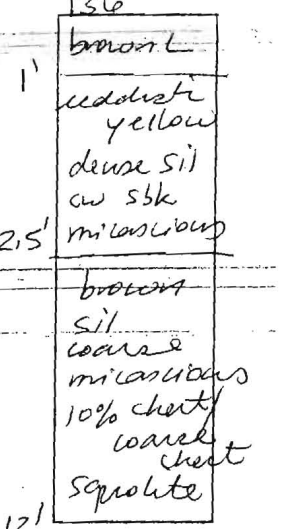 156
brown L
1'
reddish
yellow
dense sil
cw sbk
2.5' micascious
brown
sil
coarse
micascious
10% chert/
coarse
chert
Saprolite
12'